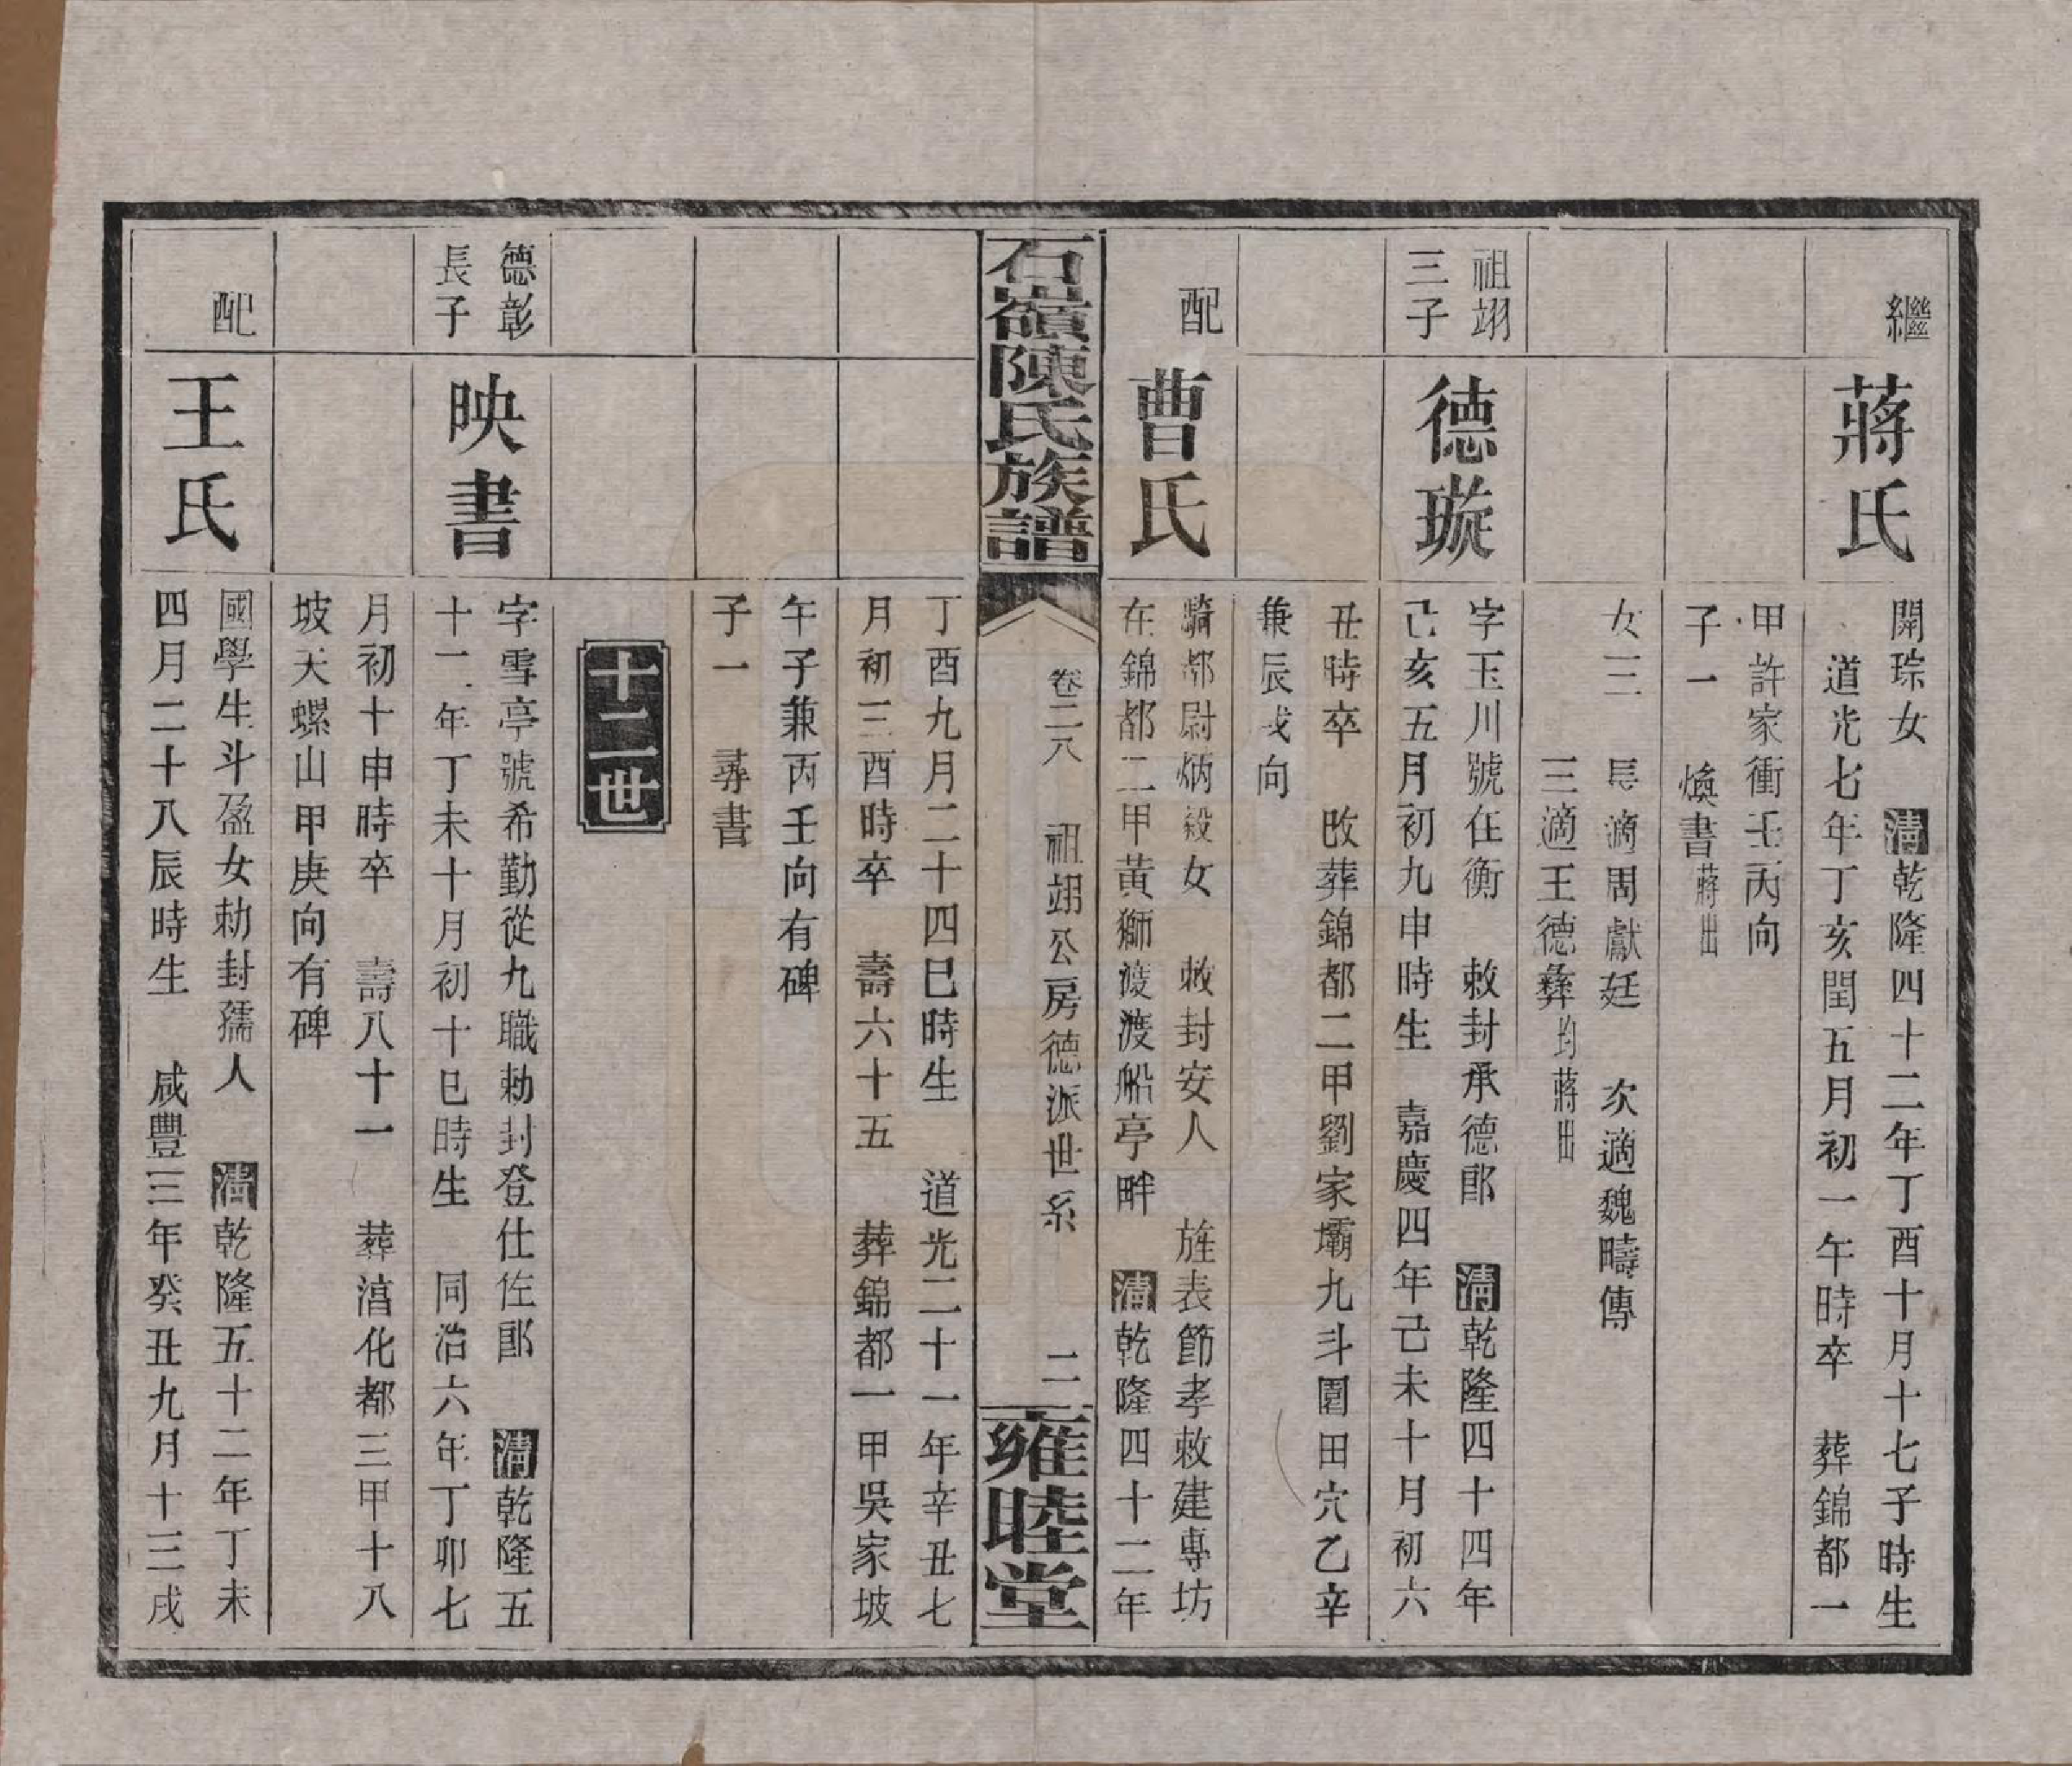 繼
蔣氏
開琮女　清乾隆四十二年丁酉十月十七子時生
道光七年丁亥閏五月初一午時卒　葬錦都一
甲許家衝壬丙向
子一　煥書蔣出
女三　長適周獻廷　次適魏疇傳
三適王德彝均蔣出
祖翊
三子
德璇
字玉川號在衡　敕封承德郎　清乾隆四十四年
己亥五月初九申時生　嘉慶四年己未十月初六
丑時卒　改葬錦都二甲劉家壩九斗園田穴乙辛
兼辰戌向
配
曹氏
騎都尉炳毅女　敕封安人　旌表節孝敕建專坊
在錦都二甲黃獅渡渡船亭畔　清乾隆四十二年
石嶺陳氏族譜
卷二八　祖翊公房德派世系　二
雍睦堂
丁酉九月二十四巳時生　道光二十一年辛丑七
月初三酉時卒　壽六十五　葬錦都一甲吳家坡
午子兼丙壬向有碑
子一　尋書
十二世
德彰
長子
映書
字雪亭號希勤從九職勅封登仕佐郎　清乾隆五
十二年丁未十月初十巳時生　同治六年丁卯七
月初十申時卒　壽八十一　葬淯化都三甲十八
坡天螺山甲庚向有碑
配
王氏
國學生斗盈女勅封孺人　清乾隆五十二年丁未
四月二十八辰時生　咸豐三年癸丑九月十三戌